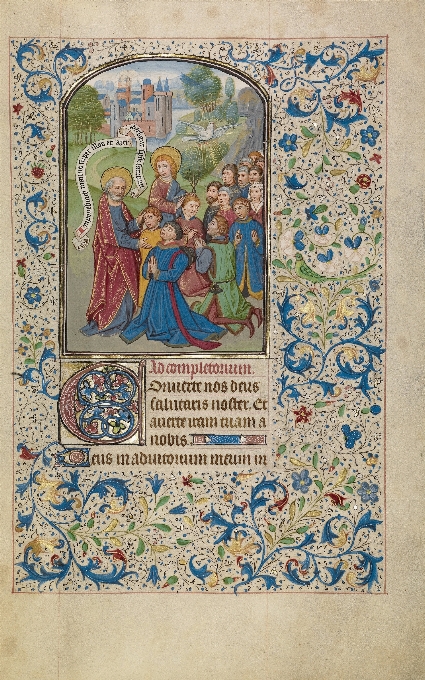 Ad completorium.
Conuerte nos deus
salutaris noster. Et
auerte iram tuam a
nobis.
Deus in adiutorium meum in